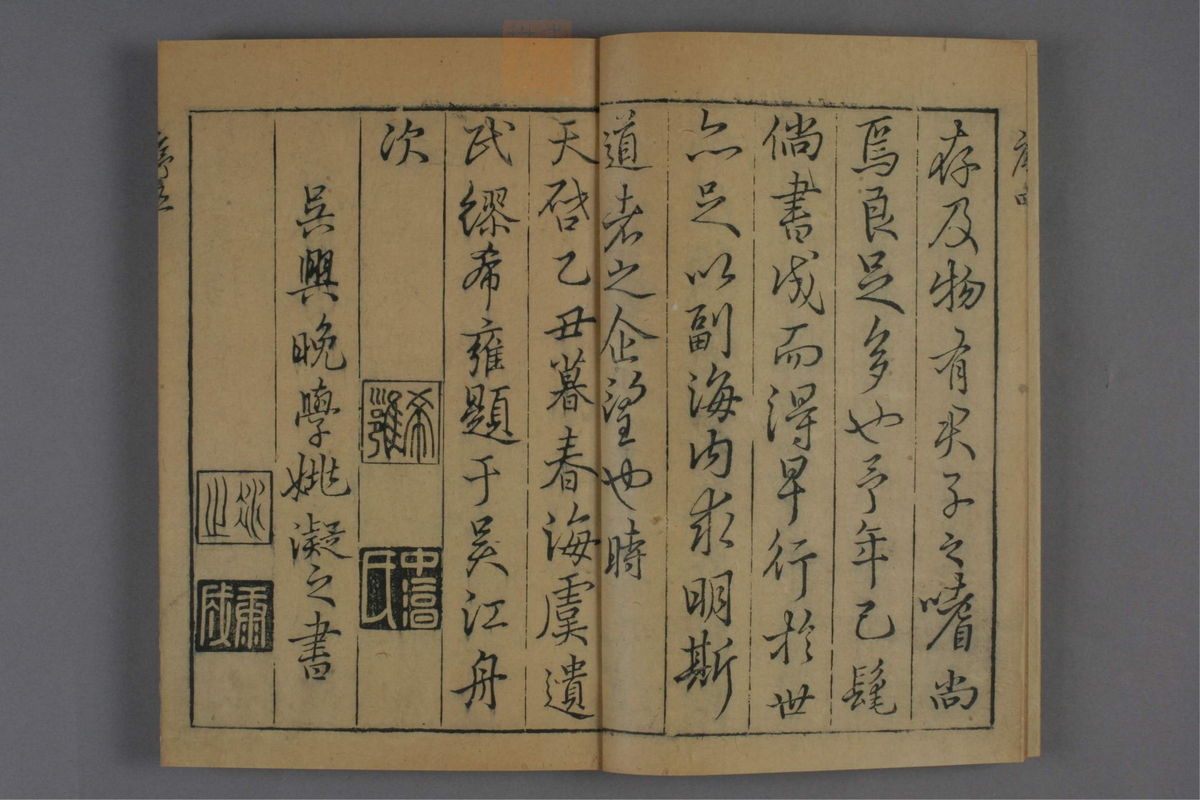 存及物有夫子之嗜尚
焉良足多也予年已髦
倘書成而得早行於世
亦足以副海内求明斯
道者之企望也時
天啓乙丑暮春海虞遺
民繆希雍題于吴江舟
次
希雍
中
氏
吳興晚學姚凝之書
凝之
序四
序五